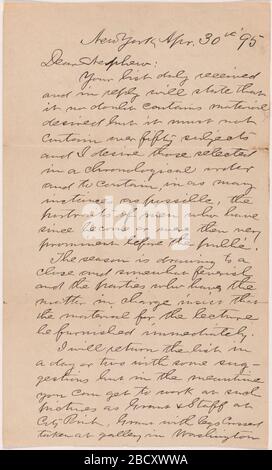 New York, Apr. 30th '95
Dear Nephew:
Your list duly received
and in reply will state that
it no doubt contains material
desired but it must not
contain over fifty subjects
and I desire those selected
in a chronological order
and to contain, in as many
instances as possible, the
portraits of men who have
since become or was then very
prominent before the public.
The season is drawing to a
close and somewhat feverish
and the parties who have the
matter in charge insist that
the material for the lecture
be furnished immediately.
I will return the list in
a day or two with some sug-
gestions but in the meantime
you can get to work at such
pictures as Grant & Staff at
City Point, Grant with legs crossed
taken at gallery in Washington
alamy
Image ID: 2BCXWWA
www.alamy.com